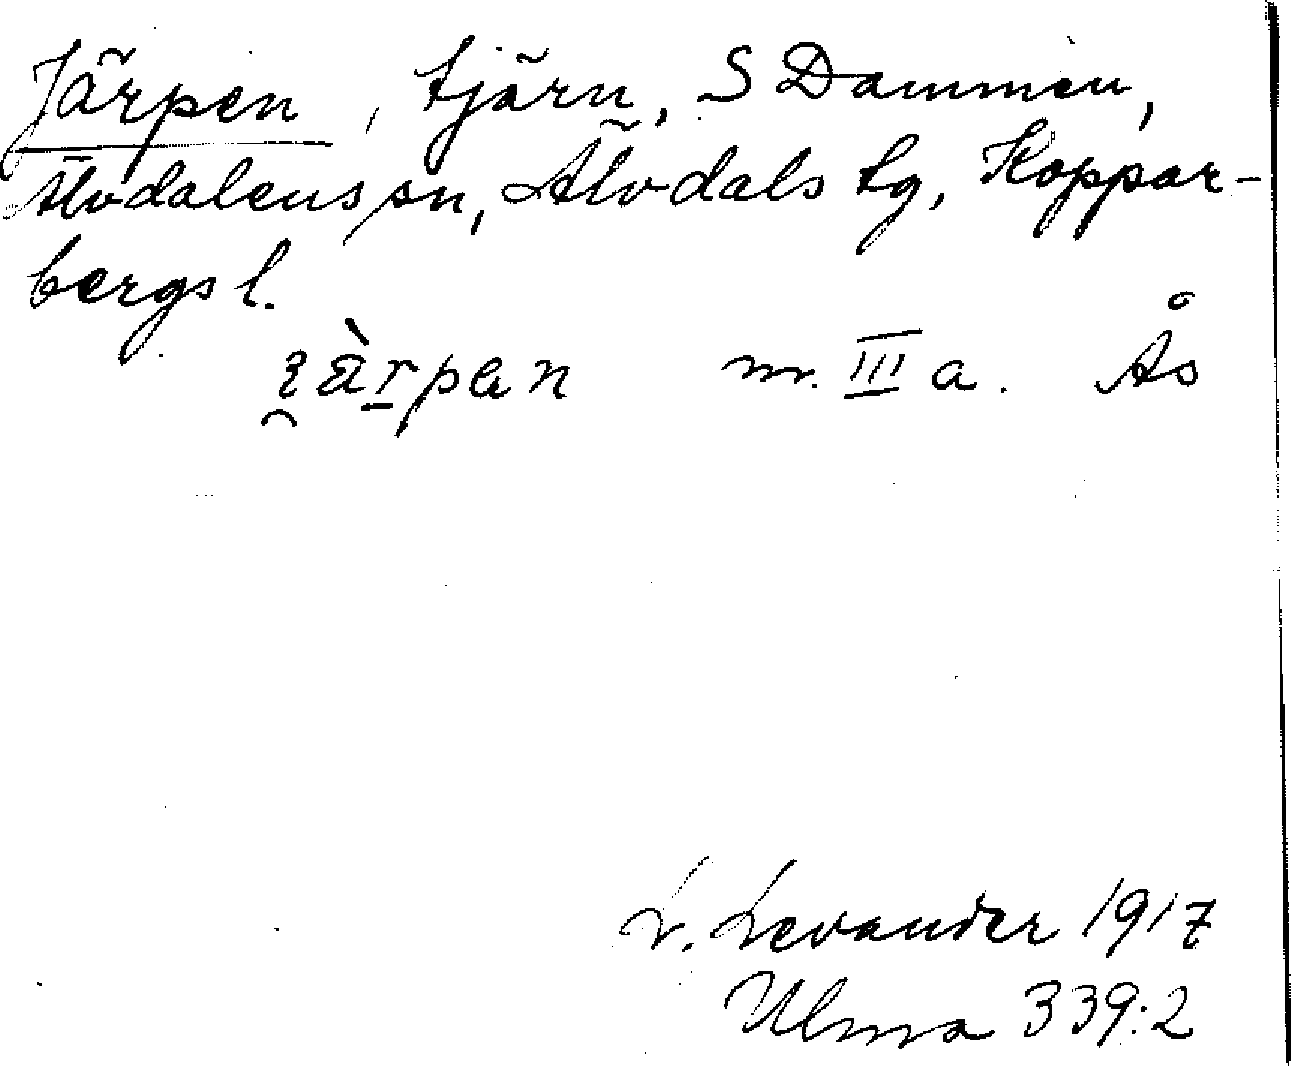 Järpen, tjärn, S Dammen,
Älvdalens sn, Älvdals tg, Koppar-
bergs l.
m. III a. Ås
L. Levander 1917
Ulma 339:2